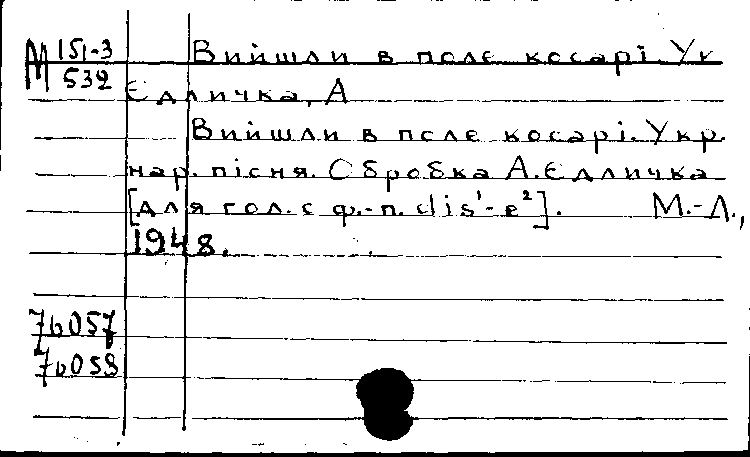 М 151-3
532
Вийшли в полє косарі. Ук
Єдличка, А
Вийшли в полє косарі. Укр.
нар. пісня. Обробка А. Єдличка
[для гол. с ф.-п. dis¹-e²]. М.-Л.,
1948.
76057
76058